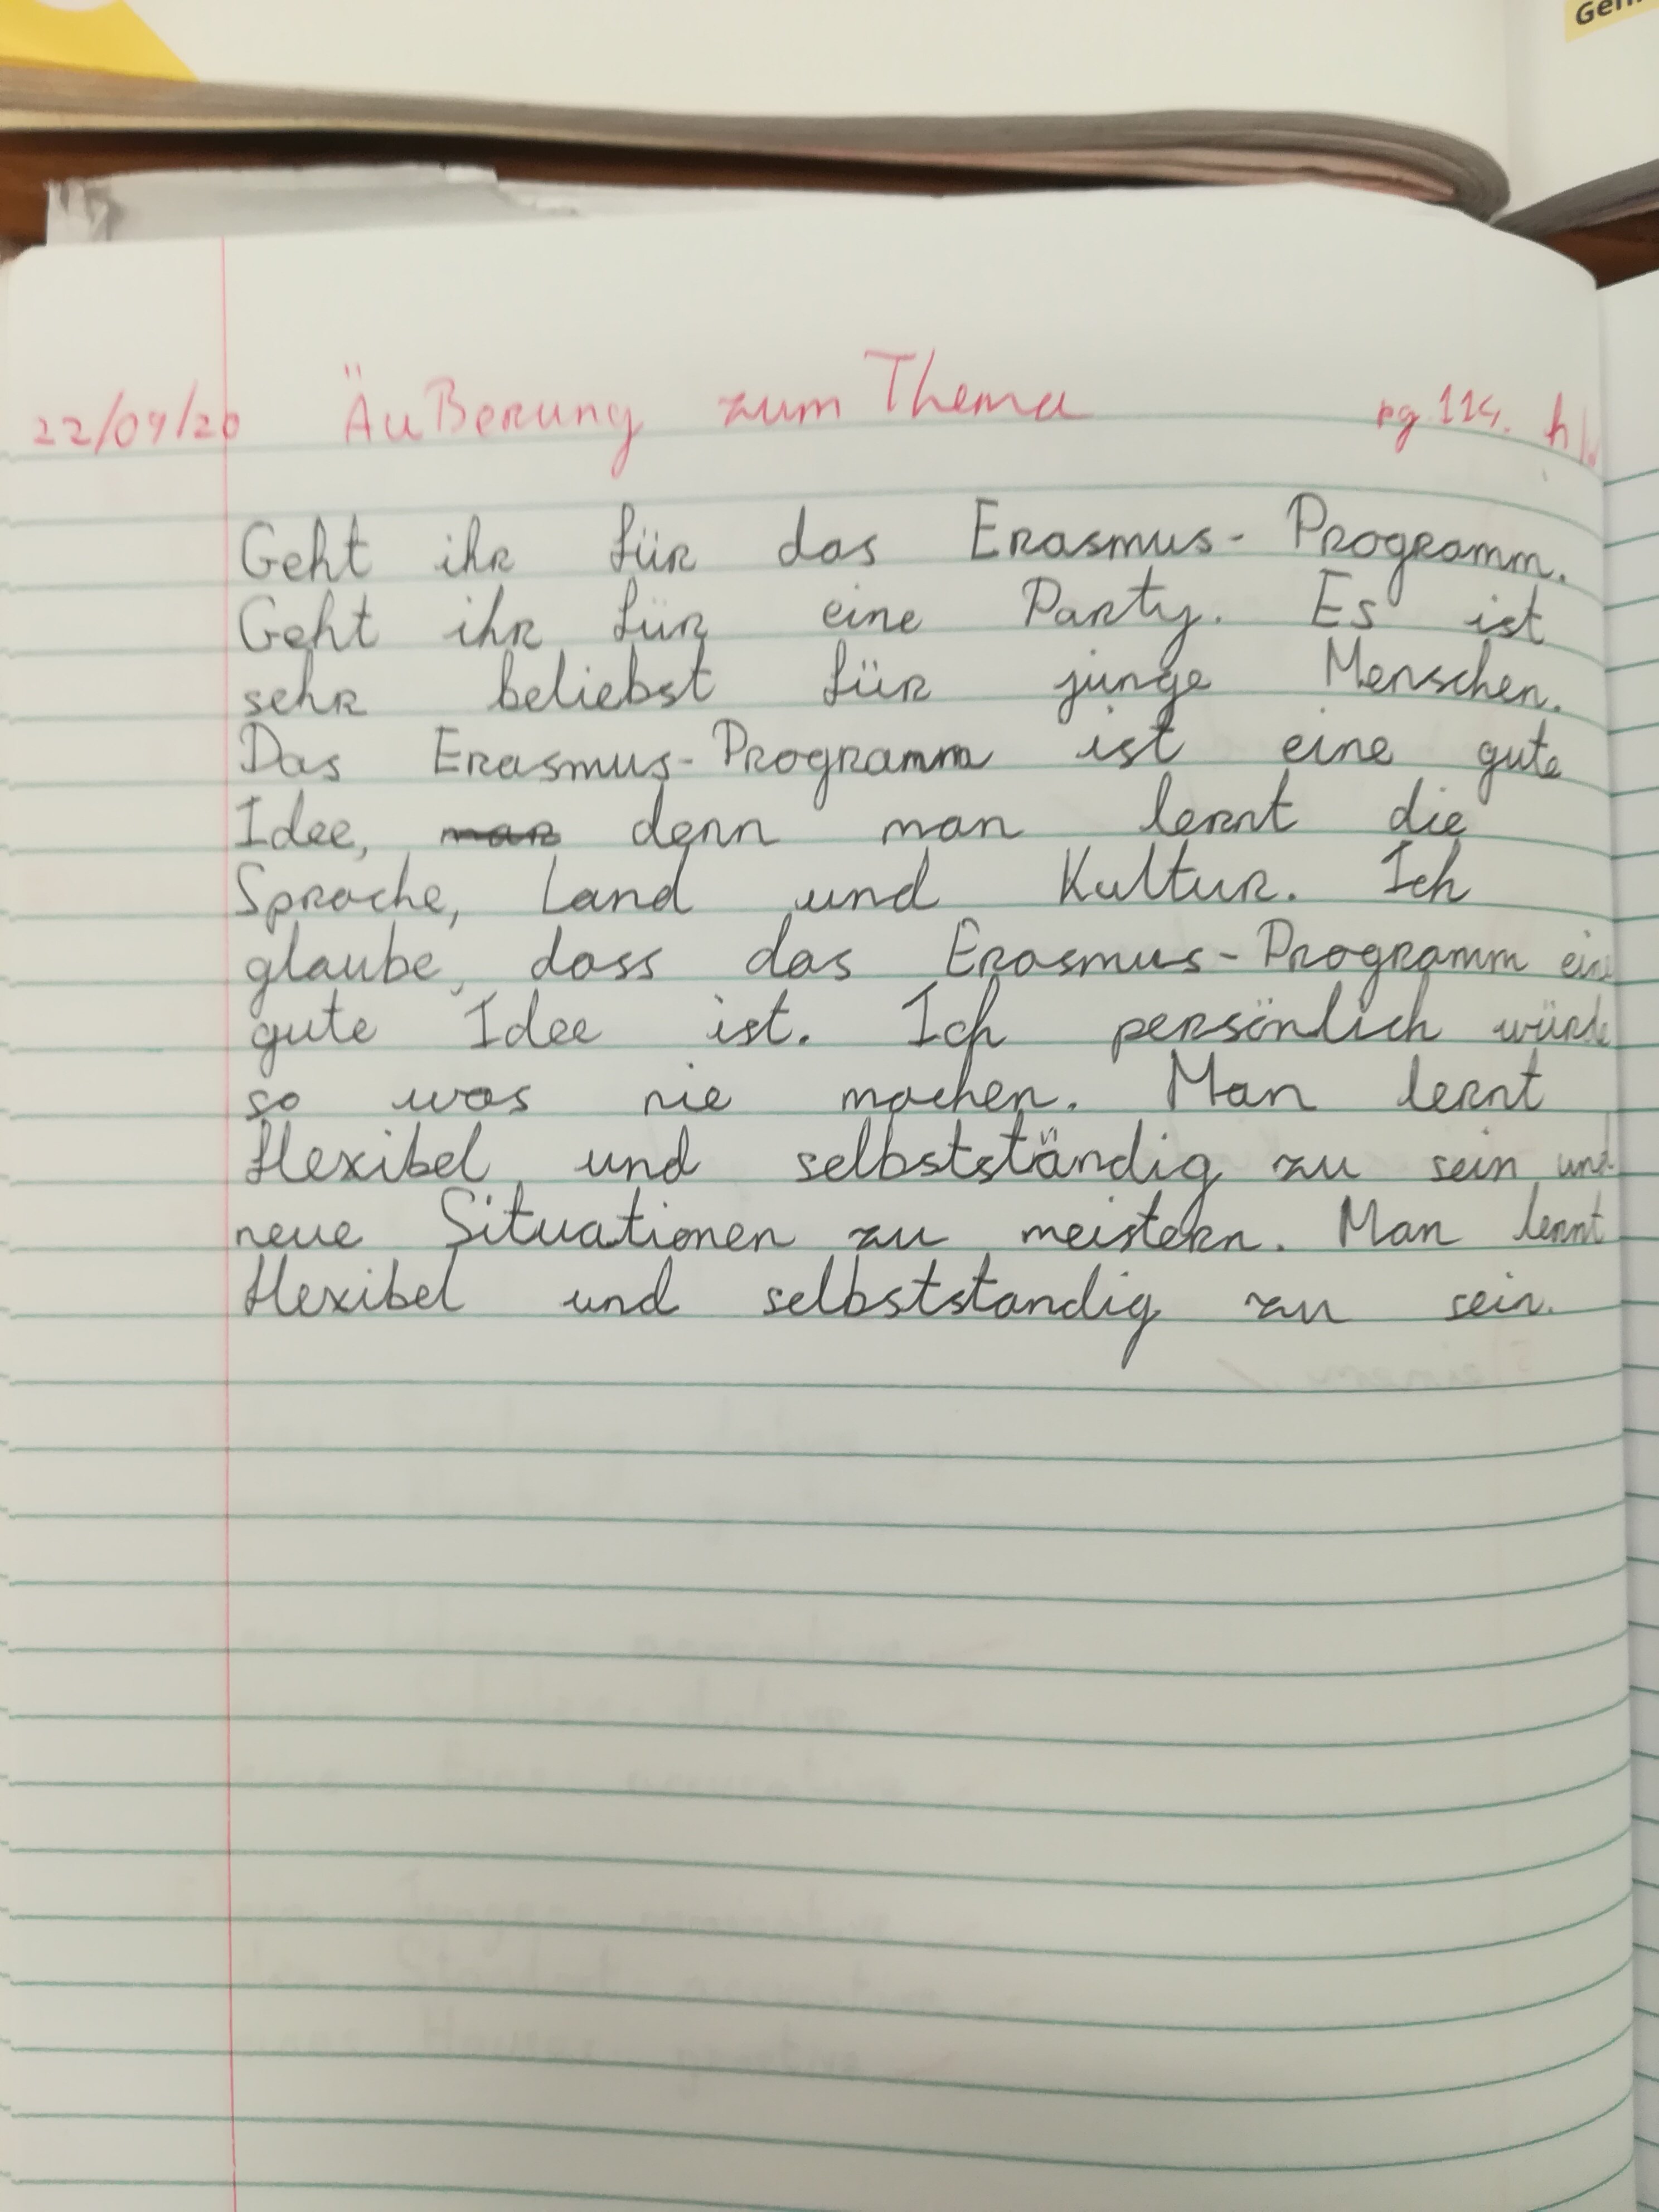 Gem
22/09/20 ÄuBerung zum Thema pg.114. h)
Geht ihr für das Erasmus-Programm.
Geht ihr für eine Party. Es ist
sehr beliebst für junge Menschen.
Das Erasmus-Programm ist eine gute
Idee, denn man lernt die
Sprache, Land und Kultur. Ich
glaube, dass das Erasmus-Programm eine
gute Idee ist. Ich persönlich würde
so was nie machen. Man lernt
flexibel und selbstständig zu sein und
neue Situationen zu meistern. Man lernt
flexibel und selbstständig zu sein.